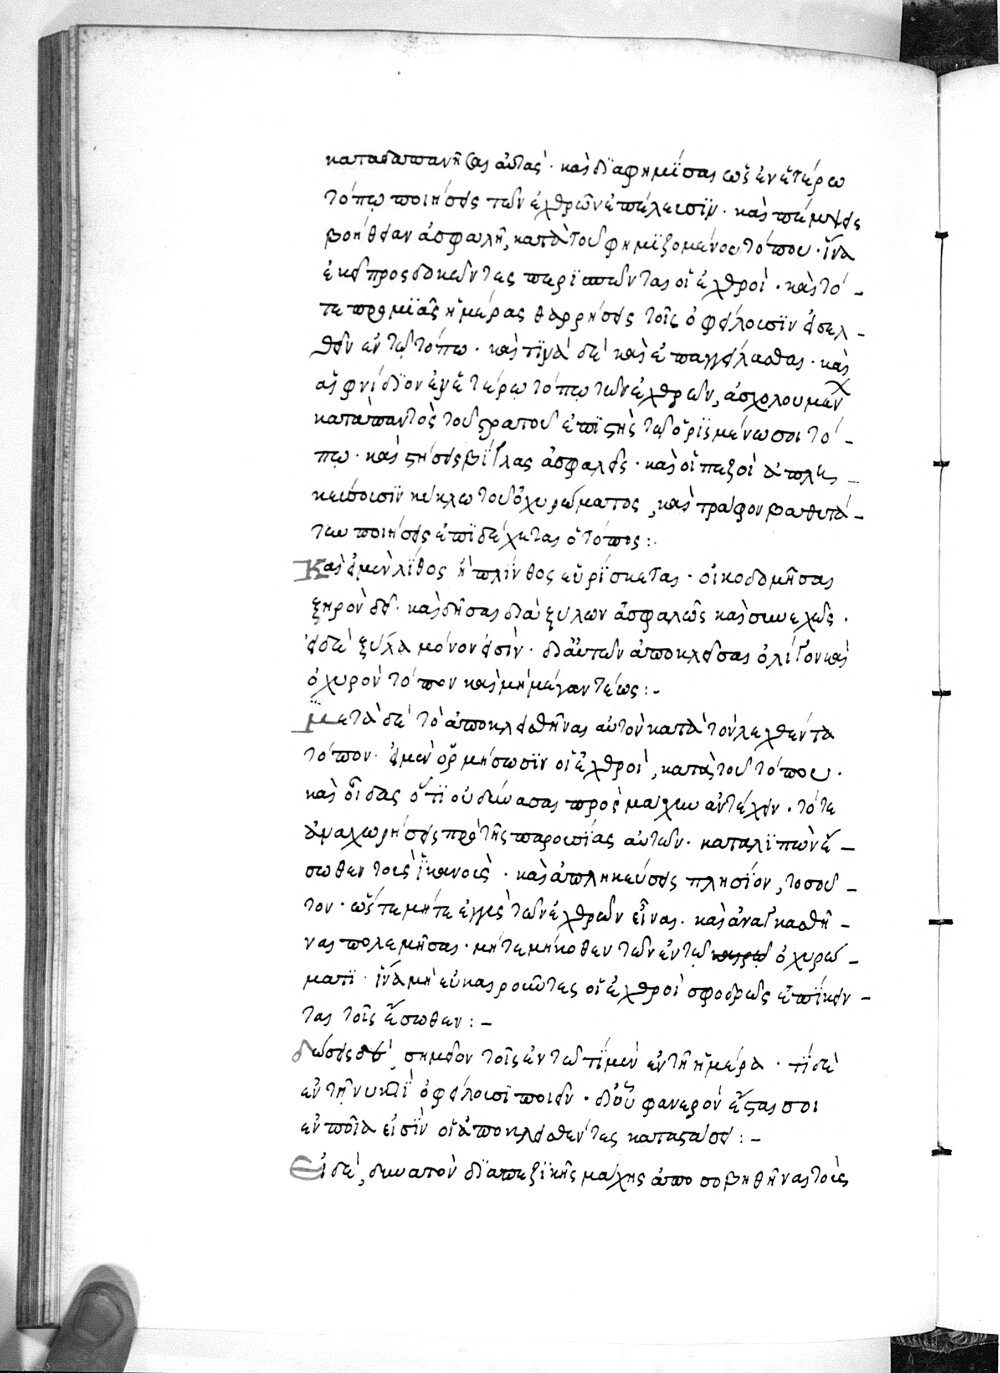 καταδαπανῆσαι αὐτάς· καὶ διαφημίσας ὡς ἐν ἑτέρω
τόπῳ ποιήσεις τῶν ἐχθρῶν ἐπέλευσιν· καὶ πέμψεις
βοήθειαν ἀσφαλῆ, κατὰ τοῦ φημιζομένου τόπου· ἵνα
ἐκεῖ προσδοκῶντες περισπῶνται οἱ ἐχθροί· καὶ τό-
τε πρὸ μιᾶς ἡμέρας θαρρήσεις τοῖς ὀφείλουσιν εἰσελ-
θεῖν ἐν τῶ τόπω· καὶ τινὰ δὲ καὶ ἐπαγγείλασθαι· καὶ
αἰφνίδιον ἐν ἑτέρω τόπω τῶν ἐχθρῶν, ἀσχολουμένων
κατὰ παντὸς τοῦ στρατοῦ ἐπιστῇς τῶ ὁρισμένω σοι τό-
πω· καὶ στήσεις βίγλας ἀσφαλεῖς· καὶ οἱ πεζοὶ ἀπλη-
κεύσουσιν κύκλω τοῦ ὀχυρώματος, καὶ τράφον βαθυτά-
των ποιήσεις εἰ ἐπιδέχεται ὁ τόπος:
Καὶ εἰ μὲν λίθος ἢ πλίνθος εὑρίσκεται· οἰκοδομῆσαι
ξηρὸν δεῖ· καὶ δῆσαι διὰ ξύλων ἀσφαλῶς καὶ συνεχῶς·
εἰ δὲ ξύλα μόνον εἰσίν· δι' αὐτῶν ἀποκλεῖσαι ὀλίγον καὶ
ὀχυρὸν τόπον καὶ μὴ μέγαν τέως:-
Μετὰ δὲ τὸ ἀποκλεισθῆναι αὐτὸν κατὰ τὸν λεχθέντα
τόπον· εἰ μὲν ὁρμήσωσιν οἱ ἐχθροὶ, κατὰ τοῦ τόπου·
καὶ οἶδας ὅτι οὐ δύνασαι πρὸς μάχην ἀντέχειν· τότε
ἀναχωρήσεις πρὸ τῆς παρουσίας αὐτῶν· καταλιπὼν ἔ-
σωθεν τοὺς ἱκανούς· καὶ ἀπληκεύσεις πλησίον, τοσοῦ-
τον· ὥστε μήτε ἐγγὺς τῶν ἐχθρῶν εἶναι· καὶ ἀναγκασθῆ-
ναι πολεμῆσαι· μήτε μήκοθεν τῶν ἐν τῶ ὀχυρώ-
ματι· ἵνα μὴ εὐκαιροῦντες οἱ ἐχθροὶ σφοδρῶς ἐπίκειν-
ται τοῖς ἔσωθεν:-
δώσεις δὲ, σημεῖον τοῖς ἐν τῶ τί μὲν ἐν τῆ ἡμέρα· τί δὲ
ἐν τῆ νυκτὶ ὀφείλουσι ποιεῖν· δι' οὗ φανερὸν ἔσται σοι
ἐν ποία εἰσὶν οἱ ἀποκλεισθέντες καταστάσει:-
Εἰ δὲ, δυνατὸν διὰ πεζικῆς μάχης ἀποσοβηθῆναι τοὺς